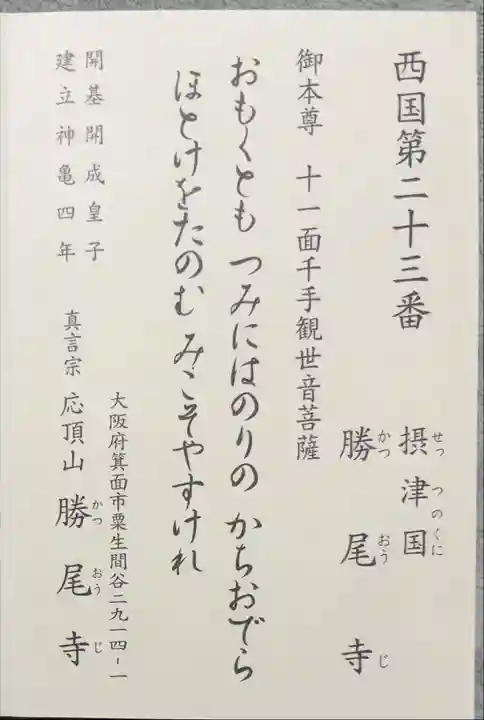 西国第二十三番
摂津国 せっつのくに
勝尾寺 かつおうじ
御本尊 十一面千手観世音菩薩
おもくとも つみにはのりの かちおでら
ほとけをたのむ みこそやすけれ
開基開成皇子
建立神亀四年
大阪府箕面市粟生間谷二九一四-一
真言宗 応頂山 勝尾寺 かつおうじ